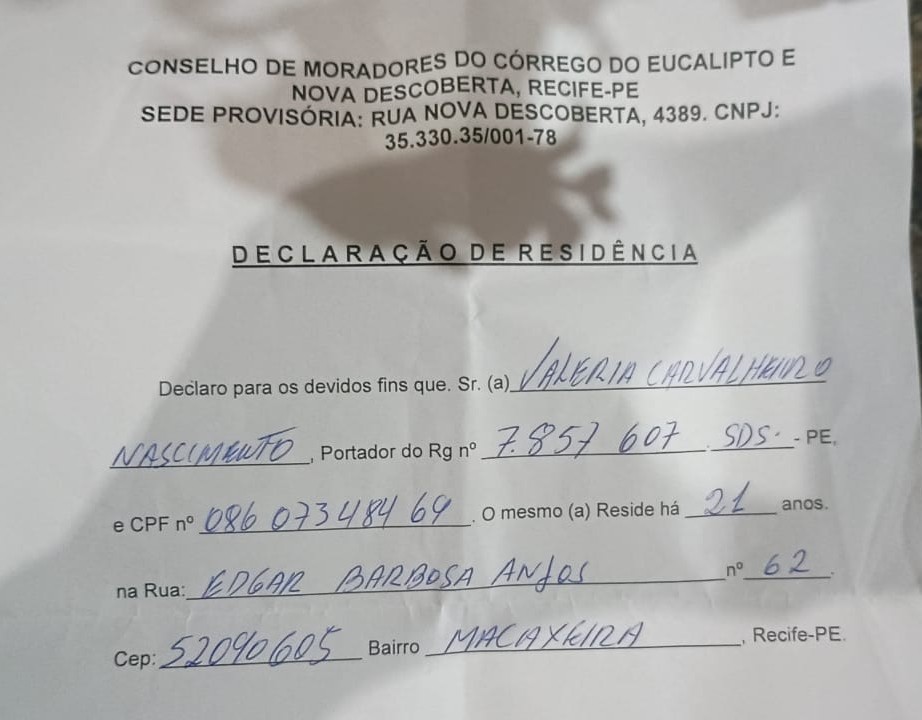 CONSELHO DE MORADORES DO CÓRREGO DO EUCALIPTO E
NOVA DESCOBERTA, RECIFE-PE
SEDE PROVISÓRIA: RUA NOVA DESCOBERTA, 4389. CNPJ:
35.330.35/001-78
DECLARAÇÃO DE RESIDÊNCIA
Declaro para os devidos fins que. Sr. (a) VALERIA CARVALHEIRO
NASCIMENTO, Portador do Rg nº 7.857 607. SDS. - PE,
e CPF nº 086 073484 69. O mesmo (a) Reside há 21 anos.
na Rua: EDGAR BARBOSA ANJOS nº 62.
Cep: 52090605 Bairro MACAXEIRA, Recife-PE.